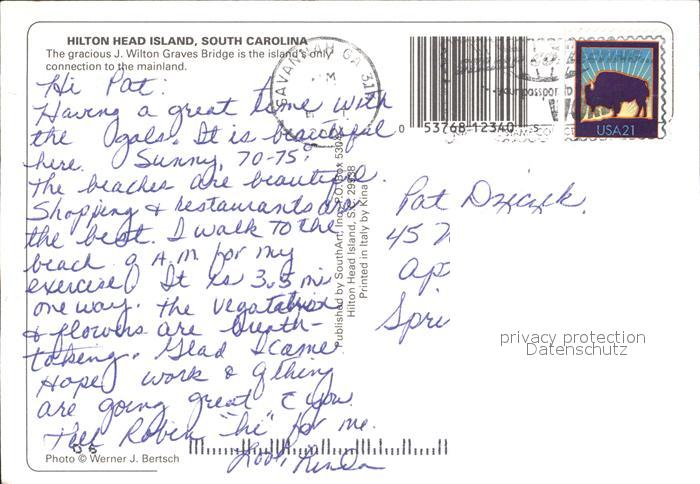 HILTON HEAD ISLAND, SOUTH CAROLINA
The gracious J. Wilton Graves Bridge is the island's only
connection to the mainland.
Hi Pat:
Having a great time with
the gals. It is beautiful
here. Sunny, 70-75°
The beaches are beautiful.
Shopping & restaurants are
the best. I walk to the
beach a A.M for my
exercise! It is 3.5 mi
one way. The vegatation
& flowers are breath-
taking. Glad I came
Hope work & things
are going great c you.
Tell Robin "hi" for me.
Love, Linda
Photo © Werner J. Bertsch
SAVANNAH GA 31
0 53768-12340 5
your passport to
USA21
Published by SouthArt, Inc. P.O. Box 530
Hilton Head Island, SC 29938
Printed in Italy by Kina
Pat Dziczek
45
Ap
Spri
privacy protection
Datenschutz